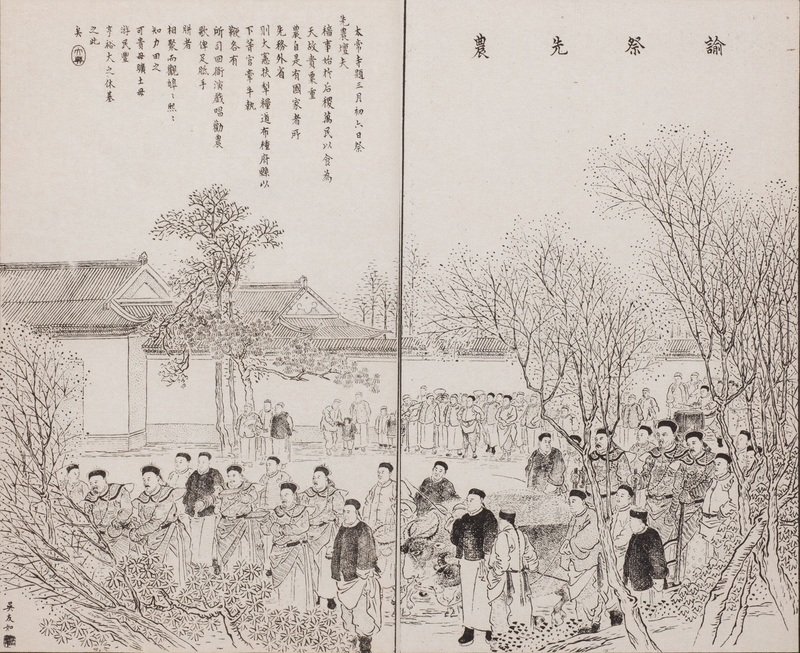 諭祭先農
太常寺題三月初六日祭
先農壇夫
穡事始於后稷萬民以食為
天故貴粟重
農自是有國家者所
先務外省
則大憲扶犂糧道布種府縣以
下等官牽牛執
鞭各有
所司回衙演戲唱勸農
歌俾足胝手
胼者
相聚而觀皞〻熙〻
知力田之
可貴毋曠土毋
游民豐
亨裕大之休基
之此
矣
吳友如